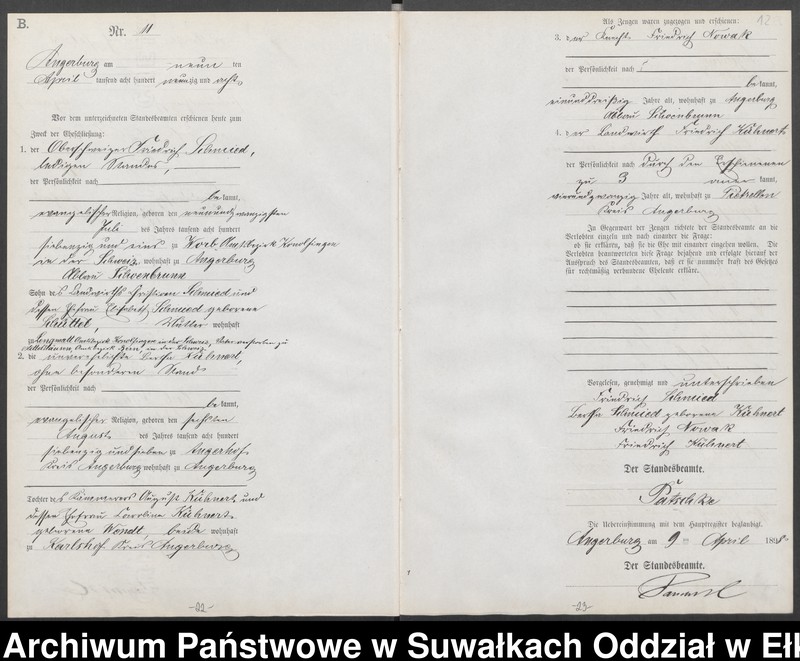 B.
Nr. 11
Angerburg am neun ten
April tausend acht hundert neunzig und acht
Vor dem unterzeichneten Standesbeamten erschienen heute zum
Zweck der Eheschließung:
1. der Oberschweizer Friedrich Schmied,
ledigen Standes,
der Persönlichkeit nach
be kannt,
evangelischer Religion, geboren den neunundzwanzigsten
Juli des Jahres tausend acht hundert
siebenzig und eins zu Worb Amtsbezirk Konolfingen
in der Schweiz, wohnhaft zu Angerburg
Abbau Schoenbrunn
Sohn des Landwirths Christian Schmied und
dessen Ehefrau Elisabeth Schmied geborene
Mutter wohnhaft
zu Amtsbezirk Konolfingen in der Schweiz, Vater verstorben zu
in der Schweiz.
2. die unverehelichte Bertha Kühnert,
ohne besonderen Stand
der Persönlichkeit nach
be kannt,
evangelischer Religion, geboren den sechsten
August des Jahres tausend acht hundert
siebenzig und sieben zu Angerhof
Kreis Angerburg wohnhaft zu Angerburg
Tochter des Kämmerers August Kühnert und
dessen Ehefrau Caroline Kühnert
geborene Wendt, beide wohnhaft
zu Karlshof Kreis Angerburg
-22-
12
Als Zeugen waren zugezogen und erschienen:
3. der Knecht Friedrich Nowak
der Persönlichkeit nach
be kannt,
einunddreißig Jahre alt, wohnhaft zu Angerburg
Abbau Schoenbrunn
4. der Landwirth Friedrich Kühnert
der Persönlichkeit nach durch den Erschienenen
zu 3 aner kannt,
vierundzwanzig Jahre alt, wohnhaft zu
Kreis Angerburg
In Gegenwart der Zeugen richtete der Standesbeamte an die
Verlobten einzeln und nach einander die Frage:
ob sie erklären, daß sie die Ehe mit einander eingehen wollen. Die
Verlobten beantworteten diese Frage bejahend und erfolgte hierauf der
Ausspruch des Standesbeamten, daß er sie nunmehr kraft des Gesetzes
für rechtmäßig verbundene Eheleute erkläre.
Vorgelesen, genehmigt und unterschrieben
Friedrich Schmied
Bertha Schmied geborene Kühnert
Friedrich Nowak
Friedrich Kühnert
Der Standesbeamte.
Die Uebereinstimmung mit dem Hauptregister beglaubigt.
Angerburg am 9 ten April 1898
Der Standesbeamte.
-23-
Archiwum Państwowe w Suwałkach Oddział w Ełk